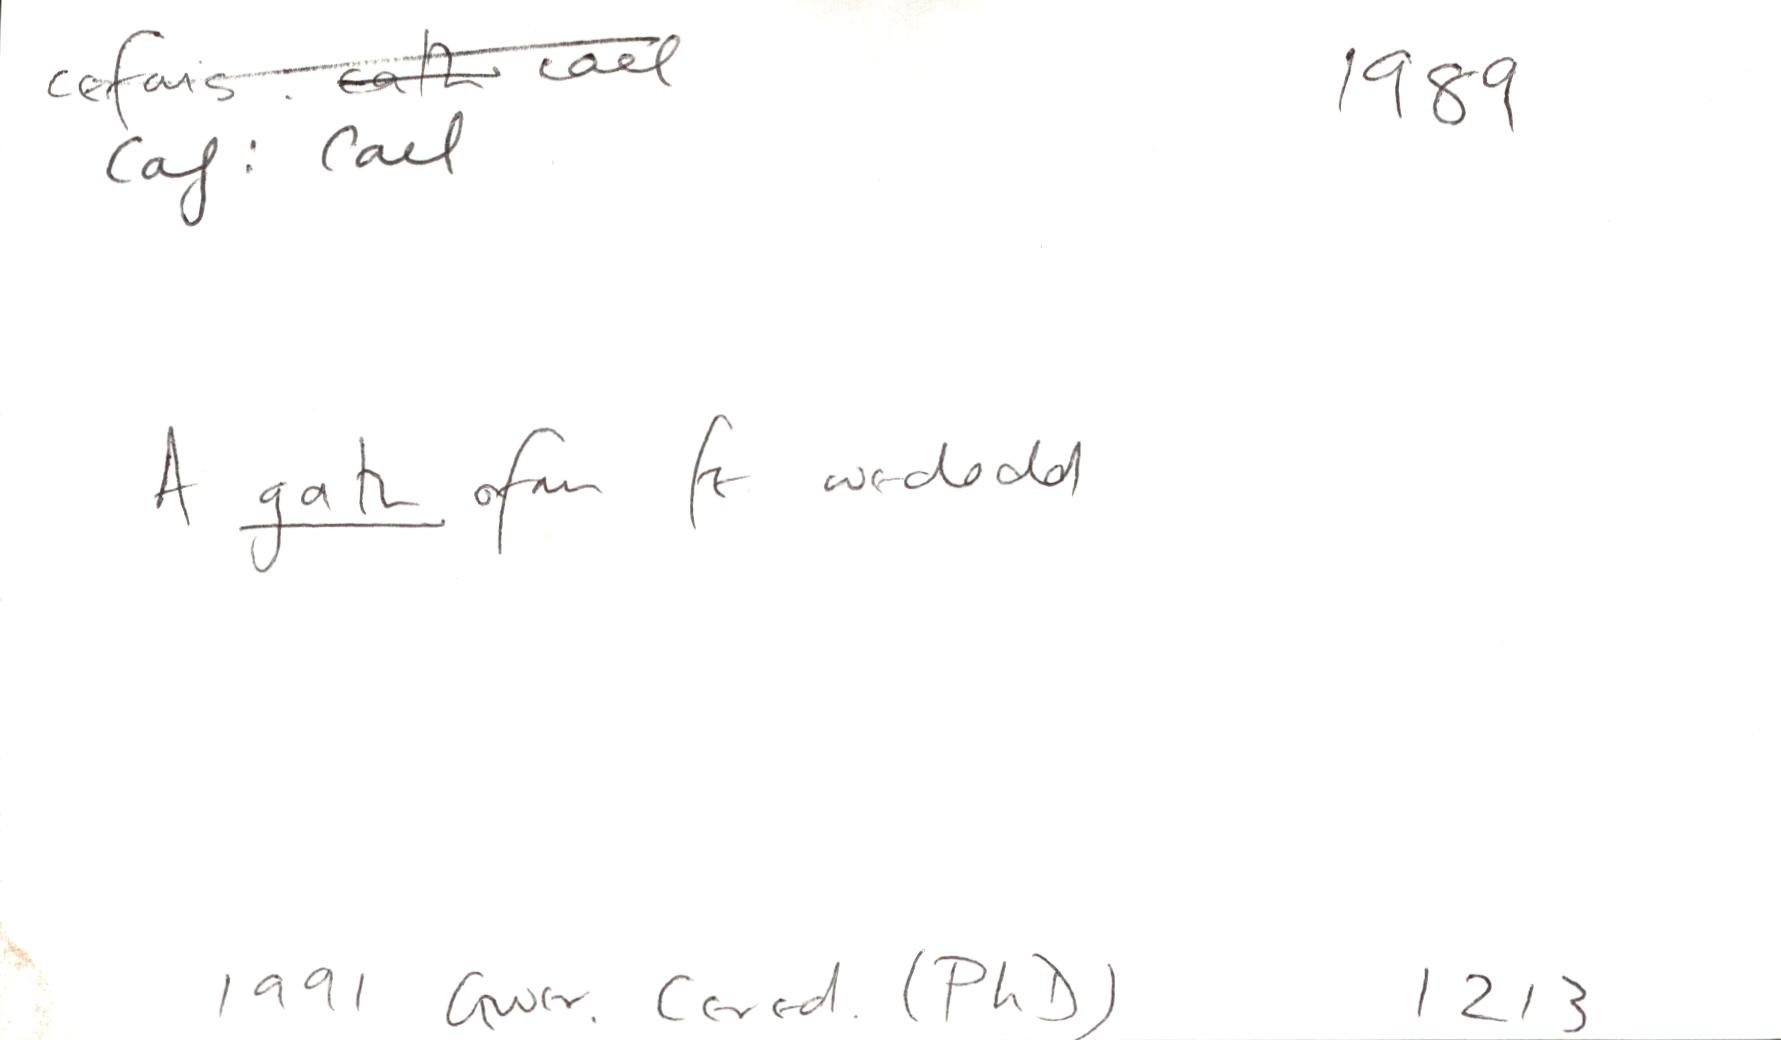 cefais. cath cael 1989
Caf: Cael
A gath ofnn fe wedodd
1991 Gwer. Cered. (PhD) 1213